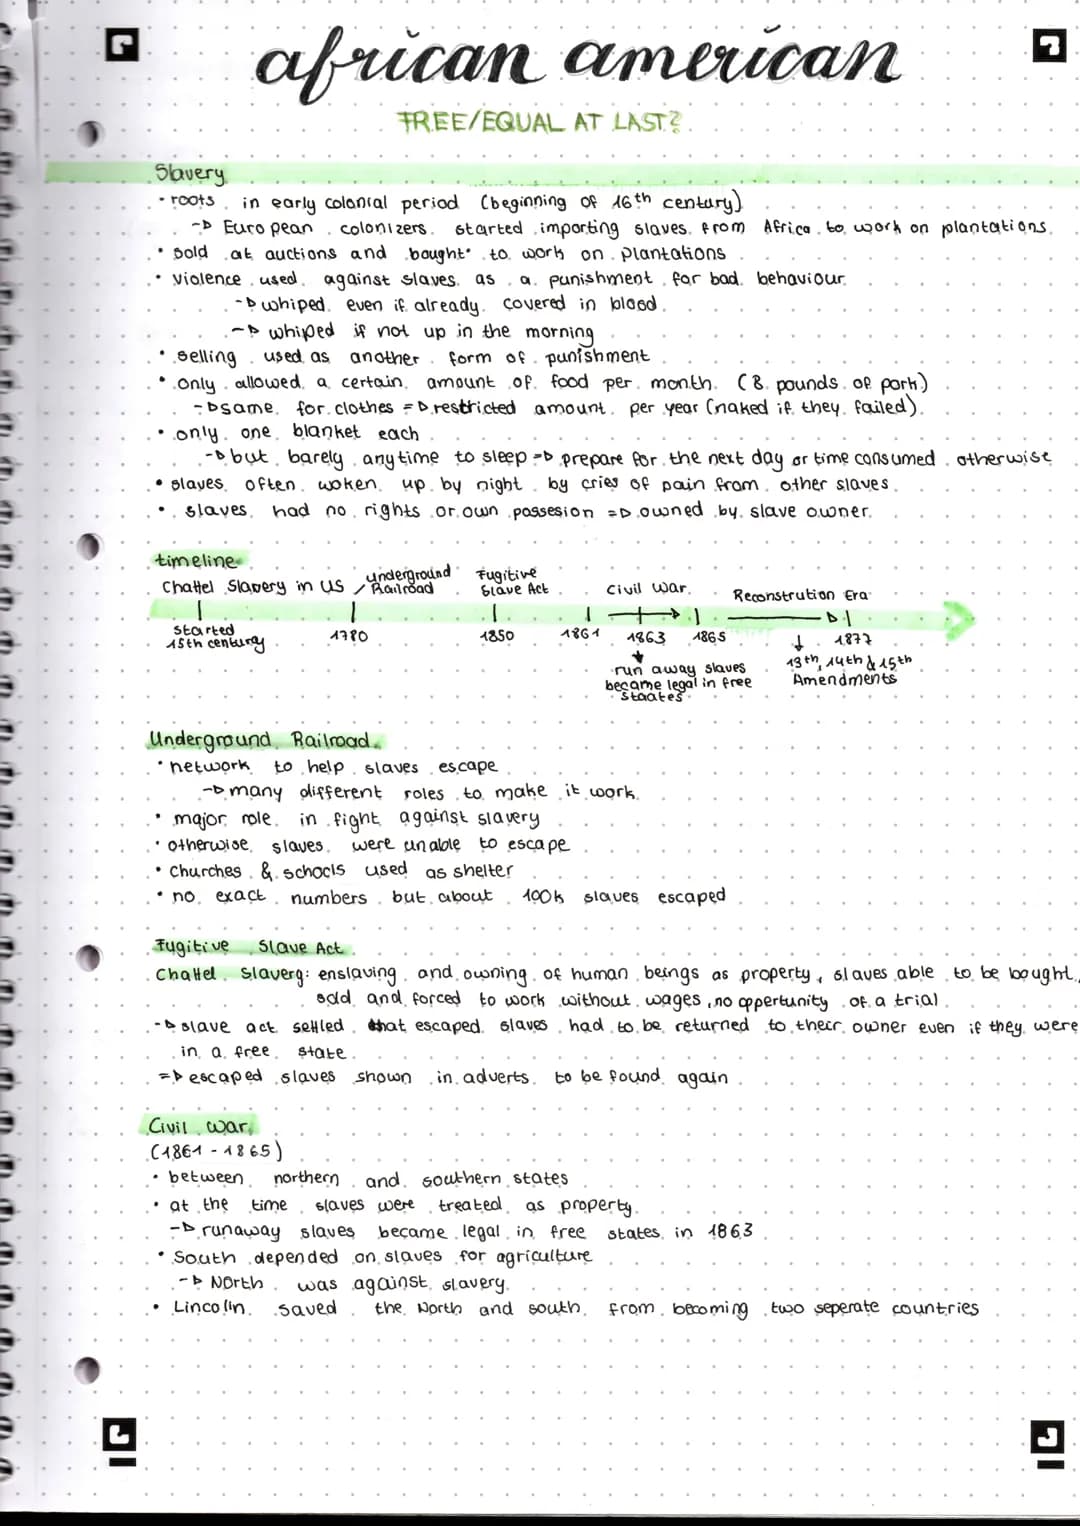 african american
FREE/EQUAL AT LAST?
Slavery
• roots in early colonial period (beginning of 16th century)
→ European colonizers started importing slaves from Africa to work on plantations
• sold at auctions and bought to work on plantations
• violence used against slaves as a punishment for bad behaviour
→ whiped even if already covered in blood
→ whiped if not up in the morning
• selling used as another form of punishment
• only allowed a certain amount of food per month (8 pounds of pork)
→ same for clothes ⇒ restricted amount per year (naked if they failed)
• only one blanket each
→ but barely anytime to sleep ⇒ prepare for the next day or time consumed otherwise
• slaves often woken up by night by cries of pain from other slaves
• slaves had no rights or own possesion ⇒ owned by slave owner
timeline
Chattel Slavery in US / Underground Railroad Fugitive Slave Act Civil War Reconstrution Era
started 15th century 1780 1850 1861 1863 1865 1877
run away slaves became legal in free staates
13th, 14th & 15th Amendments
Underground Railroad
• network to help slaves escape
→ many different roles to make it work
• major role in fight against slavery
• otherwise slaves were unable to escape
• churches & schools used as shelter
• no exact numbers but about 100k slaves escaped
Fugitive Slave Act
Chattel Slaverg: enslaving and owning of human beings as property, slaves able to be bought,
sold and forced to work without wages, no oppertunity of a trial
→ slave act settled that escaped slaves had to be returned to their owner even if they were
in a free state
⇒ escaped slaves shown in adverts to be found again
Civil war
(1861 - 1865)
• between northern and southern states
• at the time slaves were treated as property
→ runaway slaves became legal in free states in 1863
• South depended on slaves for agriculture
→ North was against slavery
• Lincolin saved the North and south from becoming two seperate countries